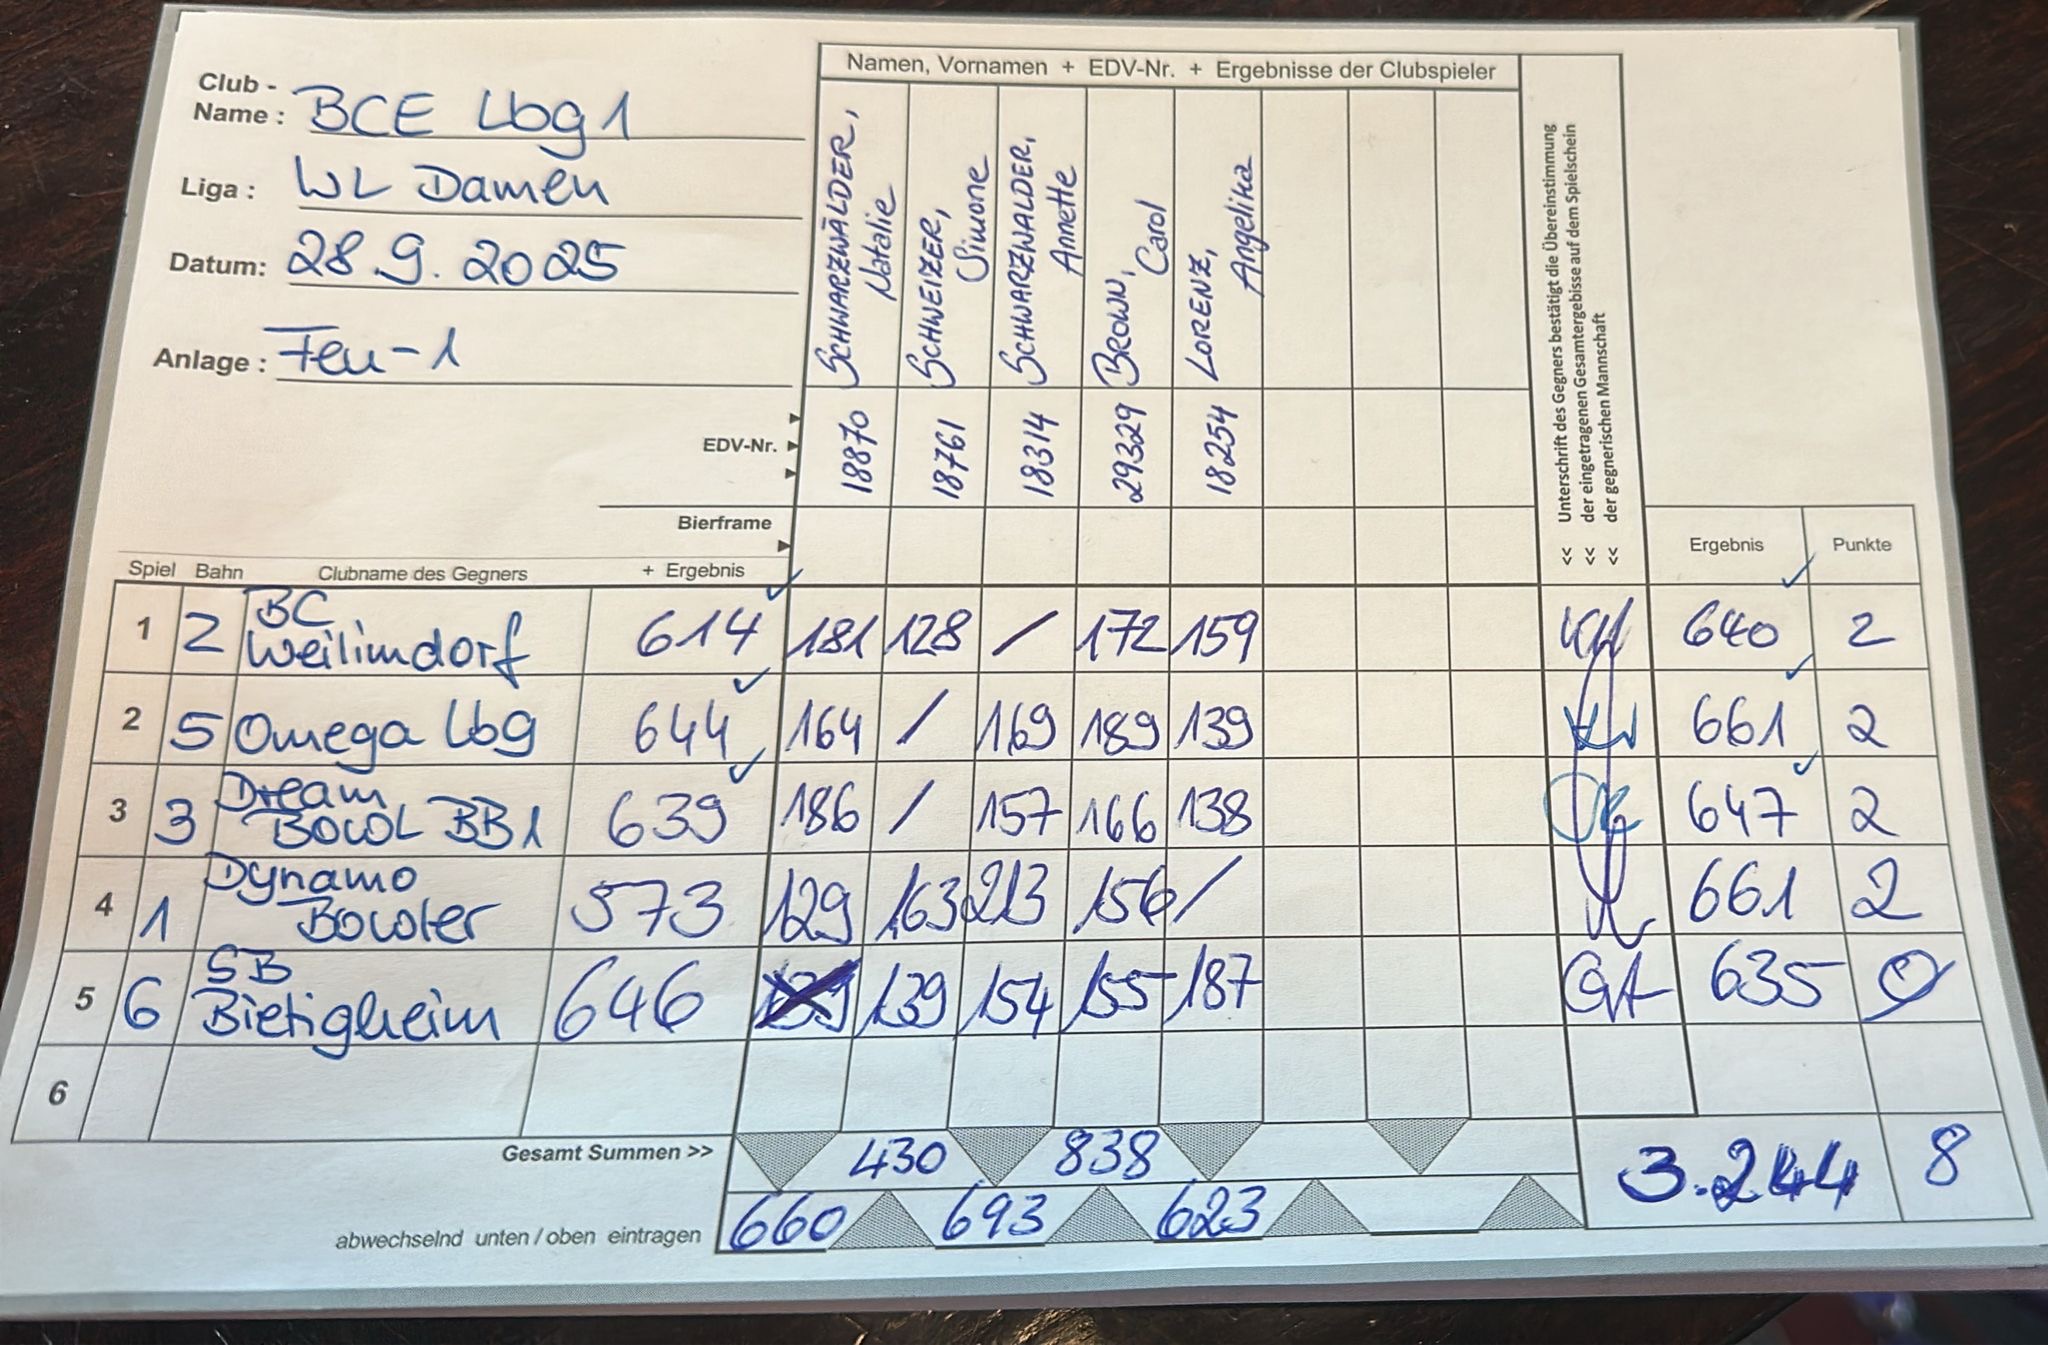 Namen, Vornamen + EDV-Nr. + Ergebnisse der Clubspieler
Club -
Name : BCE Lbg 1
Liga : WL Damen
Datum: 28.9.2025
Anlage : Feu-1
SCHWARZWÄLDER, Natalie
SCHWEIZER, Simone
SCHWARZWÄLDER, Annette
BROWN, Carol
LORENZ, Angelika
<< Unterschrift des Gegners bestätigt die Übereinstimmung
<< der eingetragenen Gesamtergebisse auf dem Spielschein
<< der gegnerischen Mannschaft
EDV-Nr. 18870 18761 18314 29329 18254
Bierframe
Spiel Bahn Clubname des Gegners + Ergebnis Ergebnis Punkte
1 2 BC Weilimdorf 614 181 128 / 172 159 640 2
2 5 Omega Lbg 644 164 / 169 189 139 661 2
3 3 Dream Bowl BB1 639 186 / 157 166 138 647 2
4 1 Dynamo Bowler 573 129 163 213 156 / 661 2
5 6 SB Bietigheim 646 139 154 155 187 635 0
6
Gesamt Summen >> 430 838 3.244 8
abwechselnd unten / oben eintragen 660 693 623